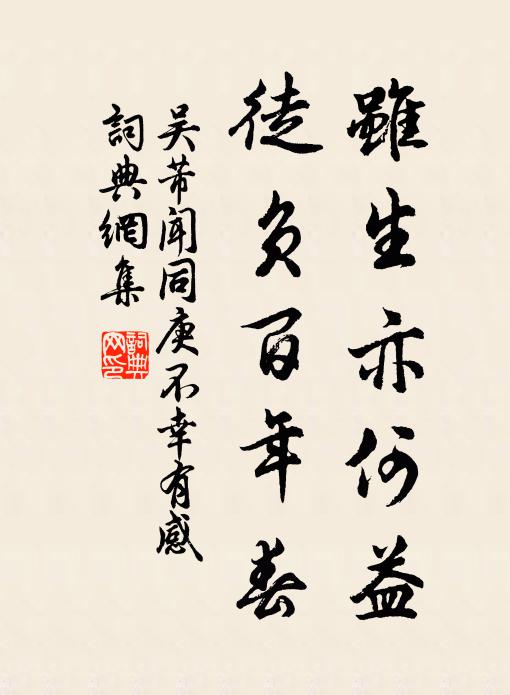 雖生亦何益
徒負百年春
吳芾聞同庚不幸有感
詞典網集
詞典网印